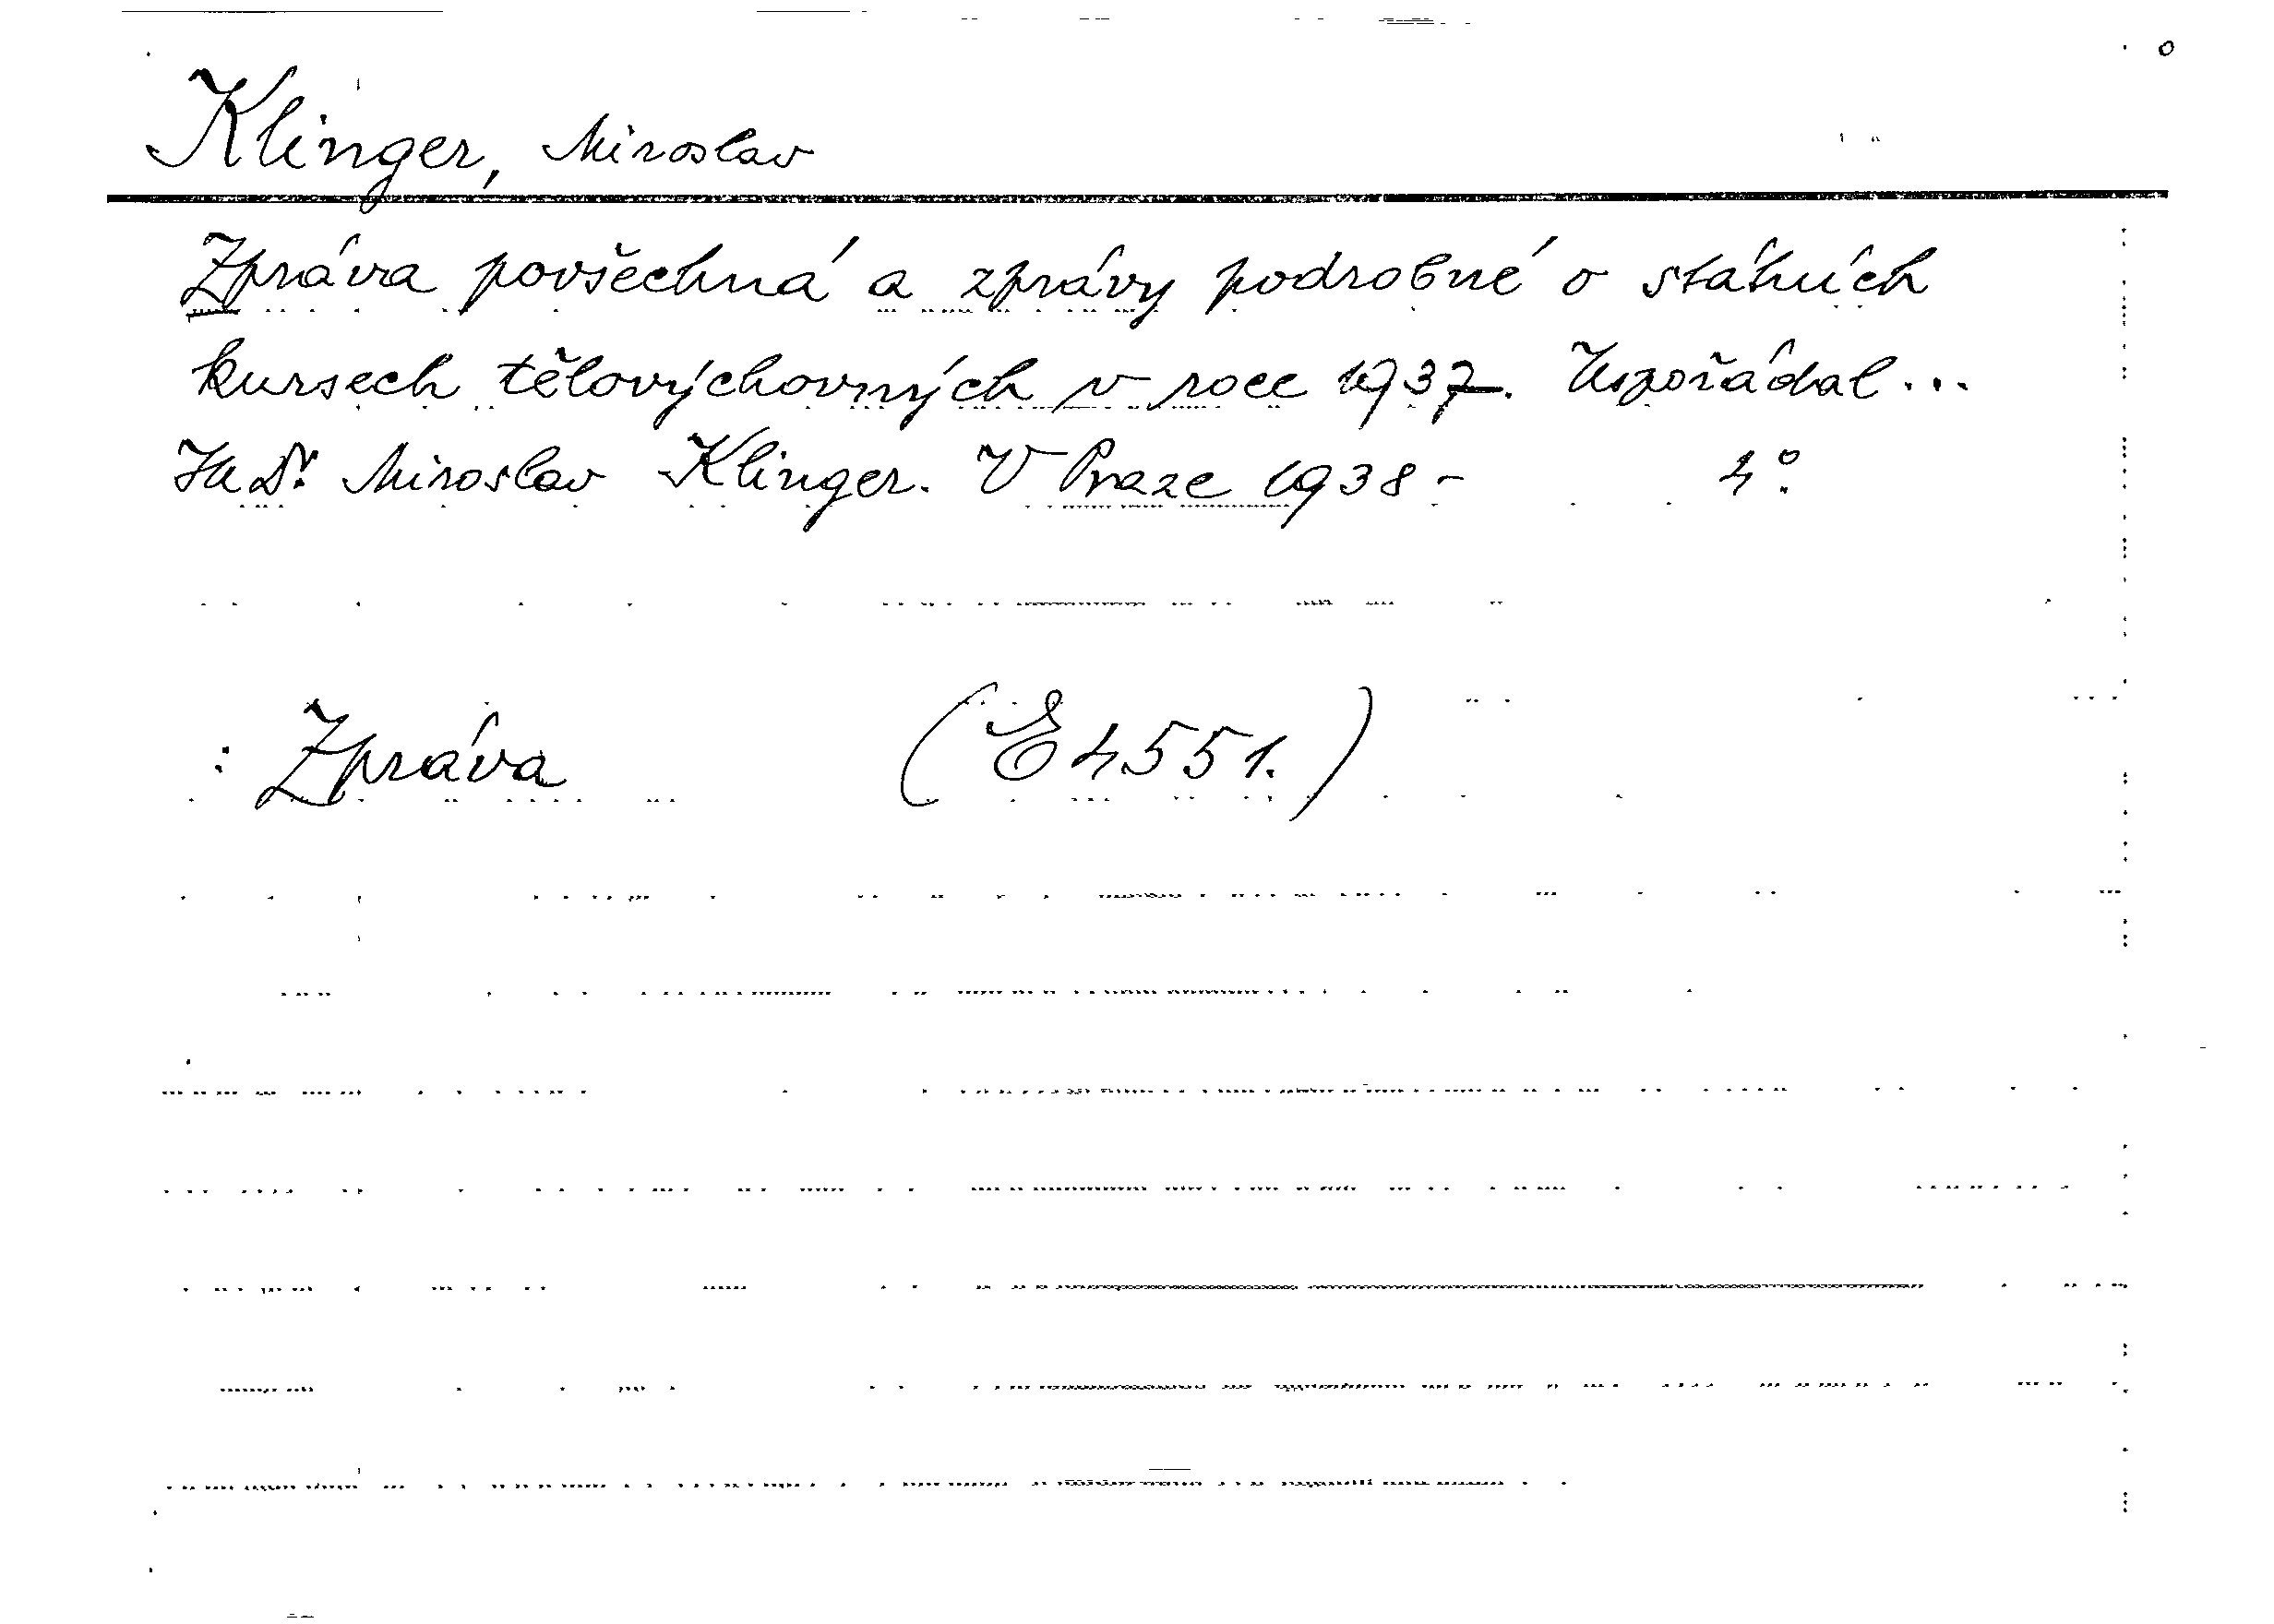 Klinger, Miroslav
Zpráva povšechná a zprávy podrobné o státních
kursech tělovýchovných v roce 1937. Uspořádal...
Dr. Miroslav Klinger. V Praze 1938 - 4°.
: Zpráva (E 4551.)